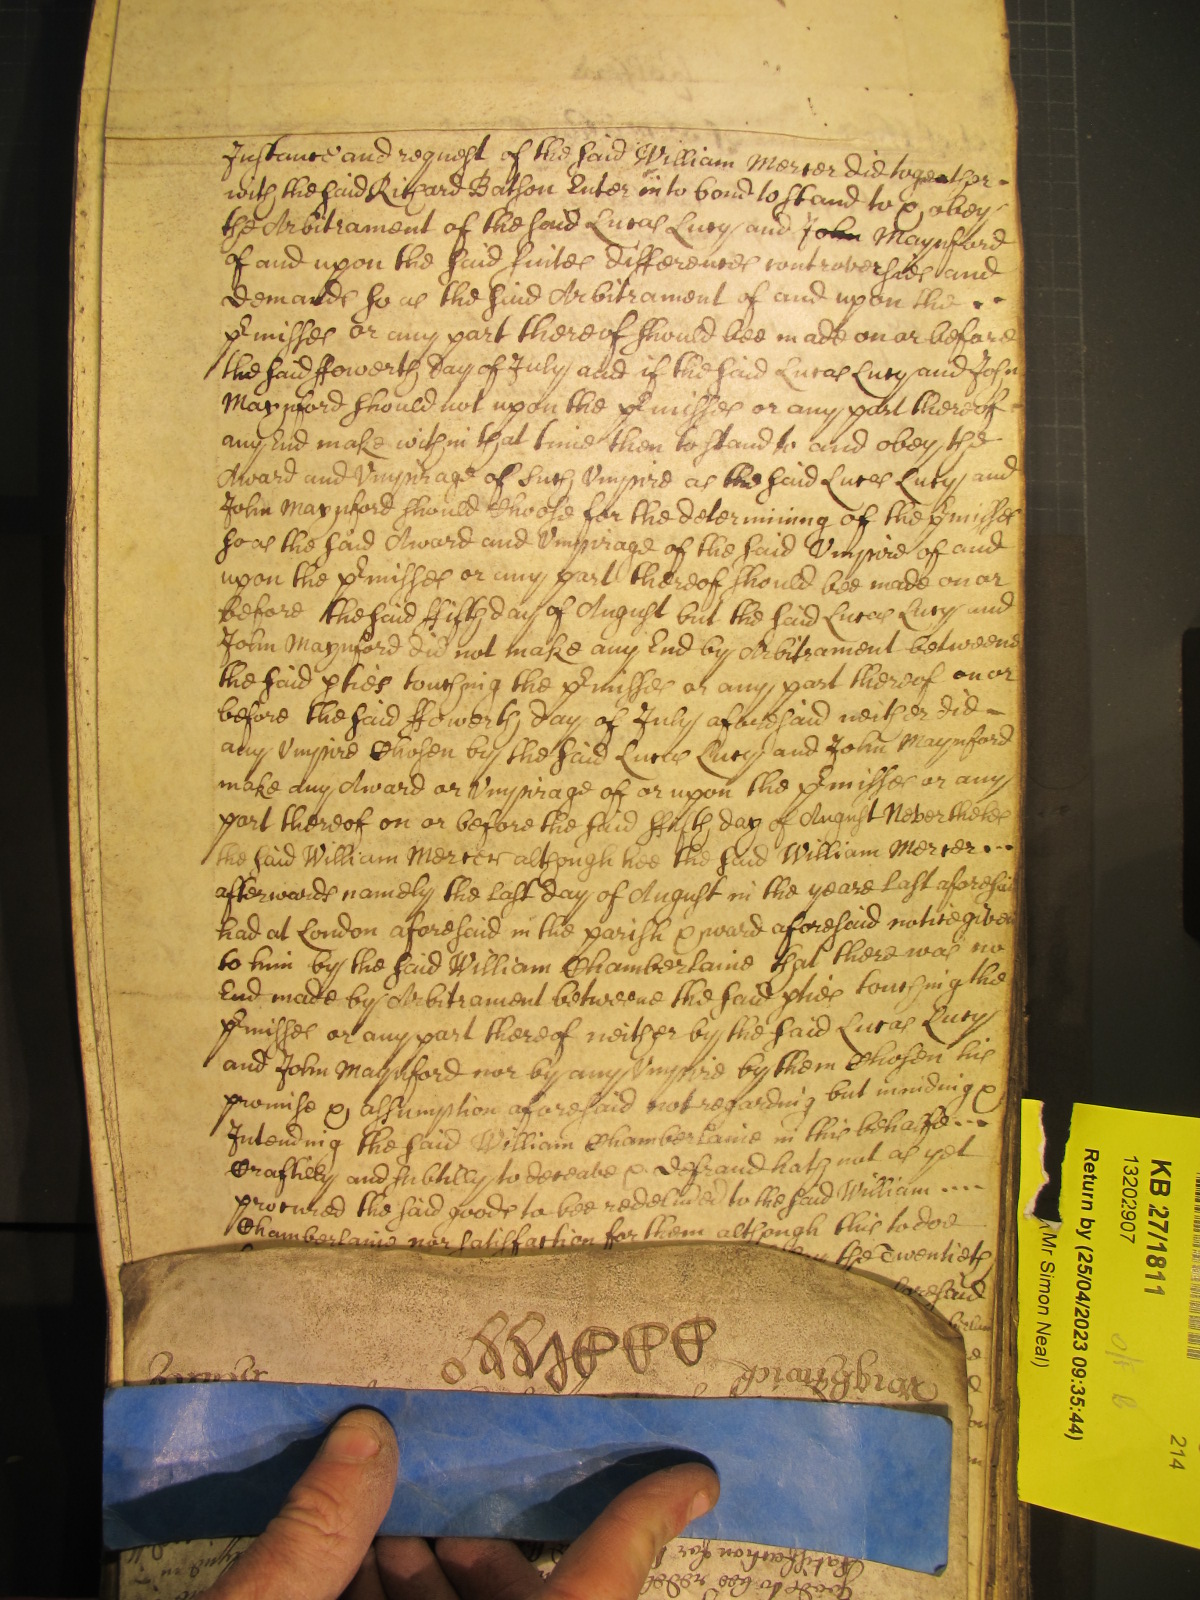 Instance and request of the said William Mercer did together
with the said Richard Batson Enter into bond to stand to & obey
the Arbitrament of the said Lucas Lucy and John Maynford
of and upon the said suites differences controversies and
demands so as the said Arbitrament of and upon the
pmisses or any part thereof should bee made on or before
the said ffowerth day of July and if the said Lucas Lucy and John
Maynford should not upon the pmisses or any part thereof
any End make within that time then to stand to and obey the
Award and Vmpirage of such Vmpire as the said Lucas Lucy and
John Maynford should Choose for the determining of the pmisses
so as the said Award and Vmpirage of the said Vmpire of and
upon the pmisses or any part thereof should bee made on or
before the said ffifth day of August but the said Lucas Lucy and
John Maynford did not make any End by Arbitrament betweene
the said pties touching the pmisses or any part thereof on or
before the said ffowerth day of July aforesaid neither did
any Vmpire Chosen by the said Lucas Lucy and John Maynford
make any Award or Vmpirage of or upon the pmisses or any
part thereof on or before the said ffifth day of August Neverthelesse
the said William Mercer although hee the said William Mercer
afterwards namely the last day of August in the yeare last aforesaid
had at London aforesaid in the parish & ward aforesaid notice given
to him by the said William Chamberlaine that there was no
End made by Arbitrament betweene the said pties touching the
pmisses or any part thereof neither by the said Lucas Lucy
and John Maynford nor by any Vmpire by them Chosen his
promise & assumption aforesaid not regarding but minding &
Intending the said William Chamberlaine in this behalfe
Craftily and subtilly to deceave & defraud hath not as yet
procured the said goods to bee redelivered to the said William
Chamberlaine nor satisfaction for them although this to doe
the Twentieth
aforesaid
KB 27/1811
13202907
Return by (25/04/2023 09:35:44)
Mr Simon Neal)
214